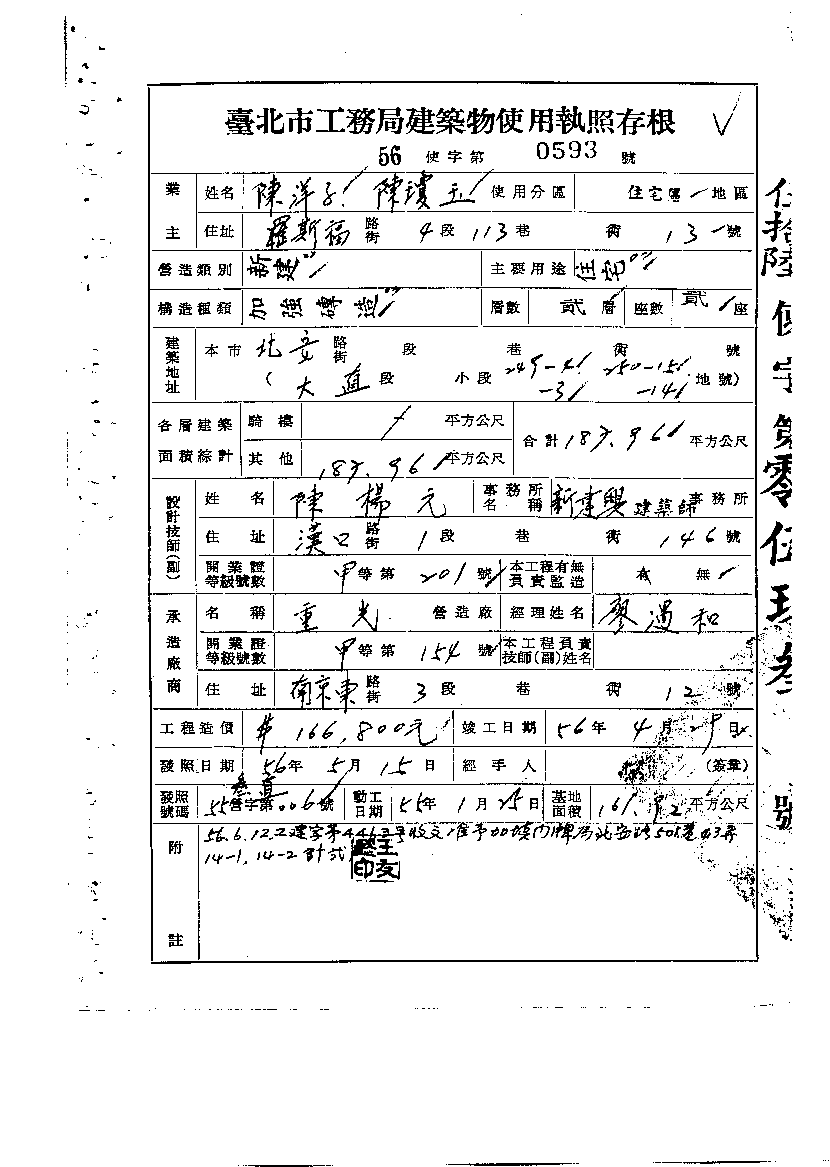 臺北市工務局建築物使用執照存根
56 使字第 0593 號
業主 姓名 陳洋子 陳瓊玉 使用分區 住宅區 地區
住址 羅斯福 路街 4 段 113 巷 衖 13 號
營造類別 新建 主要用途 住宅
構造種類 加強磚造 層數 貳層 座數 貳座
建築地址 本市 北安 路街 段 巷 衖 號
(大直段 小段 249-4 250-15 地號)
-3 -14
各層建築面積綜計 騎樓 平方公尺 合計 187.96 平方公尺
其他 187.96 平方公尺
設計技師(副) 姓名 陳楊元 事務所名稱 新建興建築師事務所
住址 漢口 路街 1 段 巷 衖 146 號
開業證等級號數 甲等第 201 號 本工程有無負責監造 有 無
承造廠商 名稱 重光 營造廠 經理姓名 廖過和
開業證等級號數 甲等第 154 號 本工程負責技師(副)姓名
住址 南京東 路街 3 段 巷 衖 12 號
工程造價 166,800元 竣工日期 56年 4月 29日
發照日期 56年 5月 15日 經手人 (簽章)
發照號碼 55營字第006號 動工日期 55年 1月 25日 基地面積 161.92 平方公尺
附註 56.6.12.工建字第 號收文准予加填門牌為北安路505巷 弄
14-1, 14-2 計
伍拾陸使字第零伍玖叁號